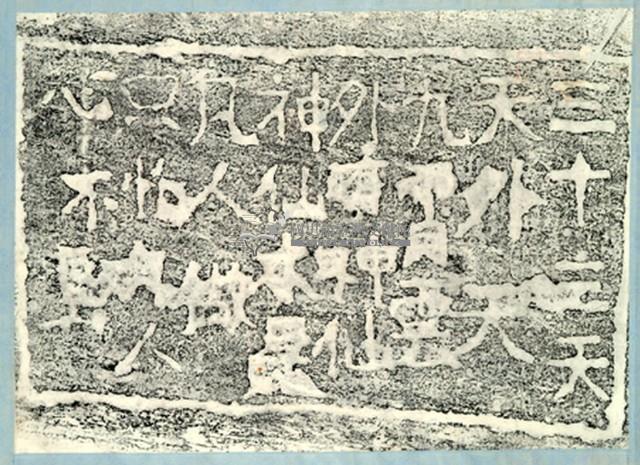 三十三天
天外天
九霄雲
外有神仙
神仙本是
凡人做
只怕凡人
心不堅